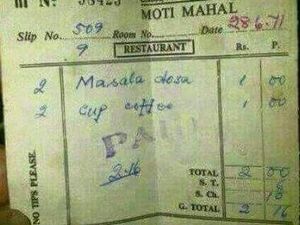 MOTI MAHAL
Slip No. 509 Room No. Date 28.6.71
9 RESTAURANT Rs. P.
2 Masala dosa 1 00
2 cup coffee 1 00
PAID
2.16
TOTAL 2 00
S. T.
S. Ch.
G. TOTAL 2 16
NO TIPS PLEASE